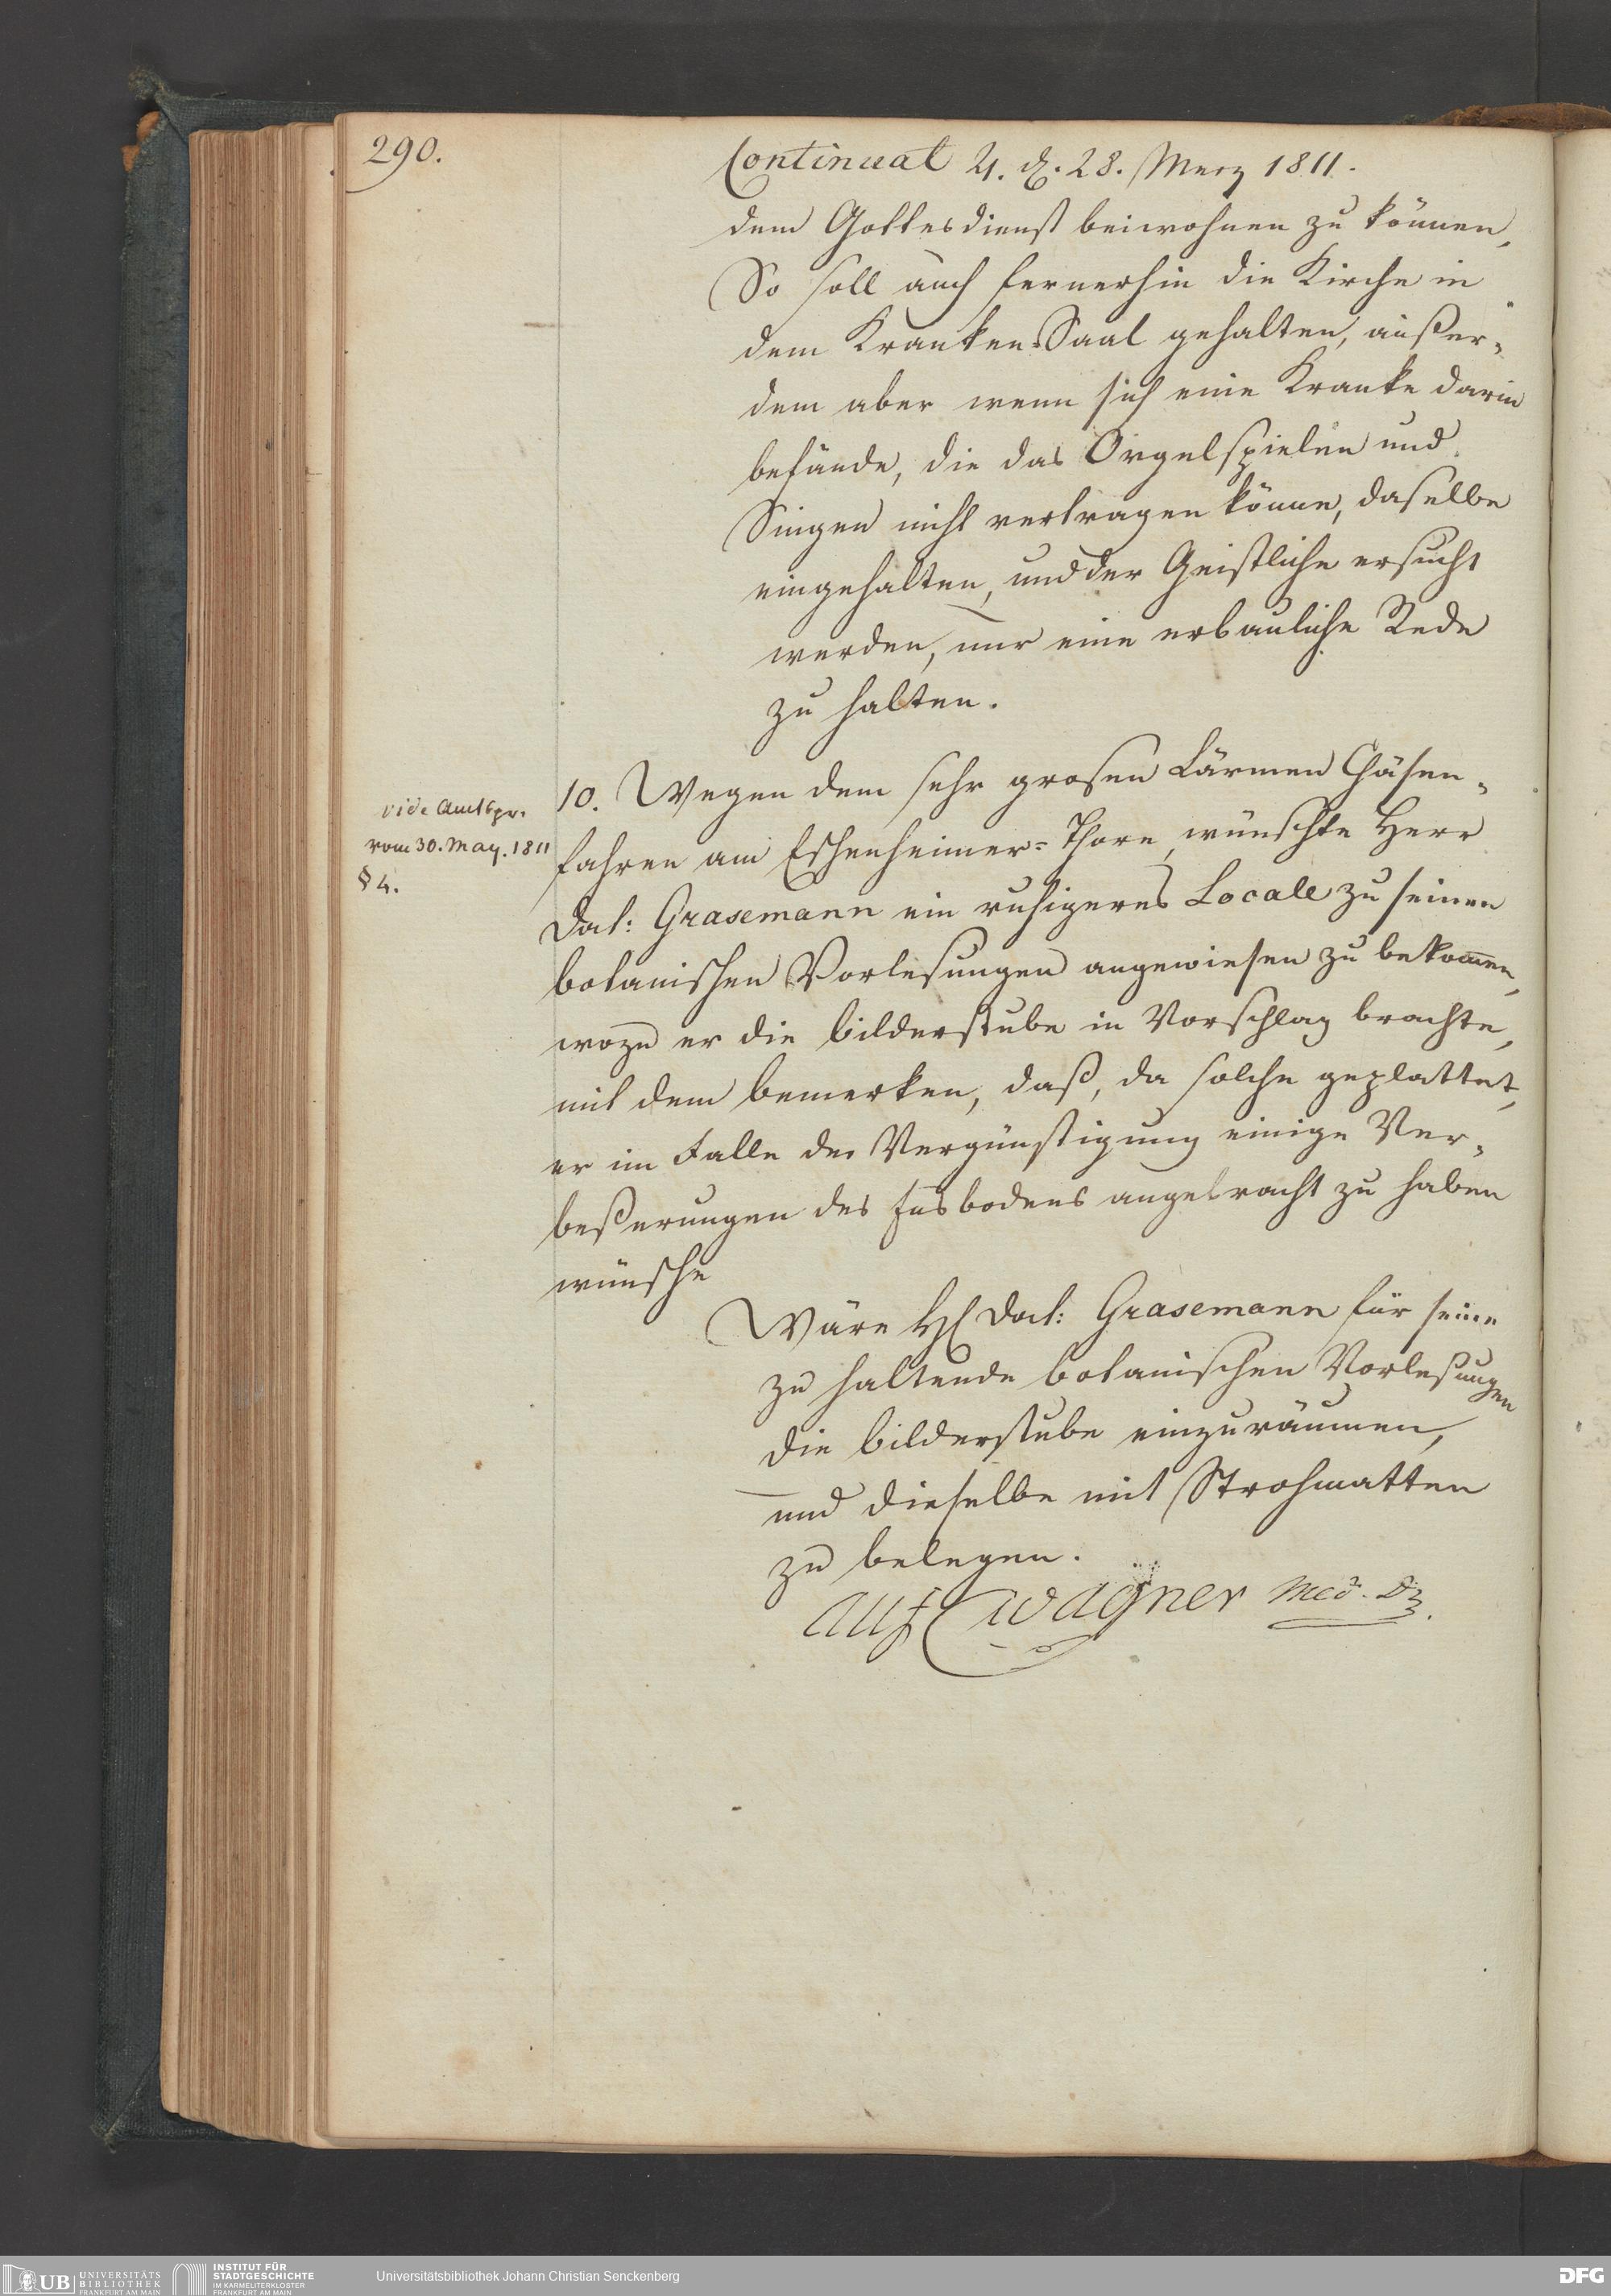 290.
Continuat 4. d. 28. Merz 1811.
dem Gottesdienst beiwohnen zu können,
So soll auch fernerhin die Kirche in
dem Kranken-Saal gehalten, außer-
dem aber wenn sich eine Kranke darin
befände, die das Orgelspielen und
Singen nicht vertragen könne, daselbe
eingehalten, und der Geistliche ersucht
werden, nur eine erbauliche Rede
zu halten.
vide Amtspr.
vom 30. May. 1811
§ 4.
10. Wegen dem sehr grosen Lärmen Chäsen-
fahren am Eschenheimer-Thore, wünschte Herr
Doct: Grasemann ein ruhigeres Locale zu seinen
botanischen Vorlesungen angewiesen zu bekom̄en,
wozu er die bilderstube in Vorschlag brachte,
mit dem bemerken, daß, da solche geplattet,
er im Falle der Vergünstigung einige Ver-
beßerungen des Fusbodens angebracht zu haben
wünsche
Wäre H Doct: Grasemann für seine
zu haltende botanischen Vorlesungen
die bilderstube einzuräumen,
und dieselbe mit Strohmatten
zu belegen.
Wagner Med. Dr.
UB UNIVERSITÄTS
BIBLIOTHEK
FRANKFURT AM MAIN
INSTITUT FÜR
STADTGESCHICHTE
IM KARMELITERKLOSTER
FRANKFURT AM MAIN
Universitätsbibliothek Johann Christian Senckenberg
DFG